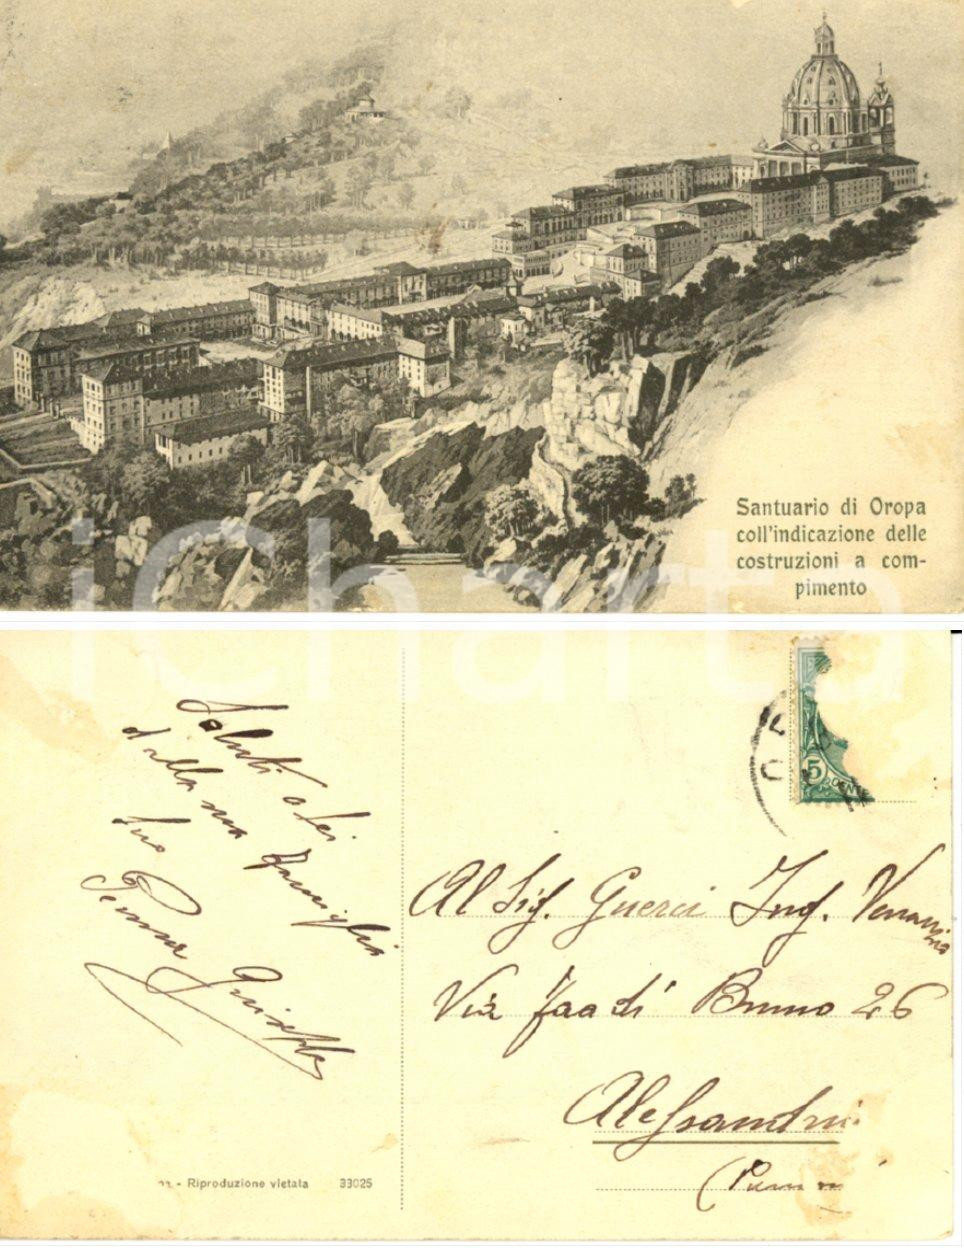 Santuario di Oropa
coll'indicazione delle
costruzioni a com-
pimento
iCharta
Saluti a Lei
e alla sua famiglia
suo
Penna Giuseppe
5
Al Sig. Guerci Ing. Venanzio
Via Faa di Bruno 26
Alessandria
- Riproduzione vietata 33025